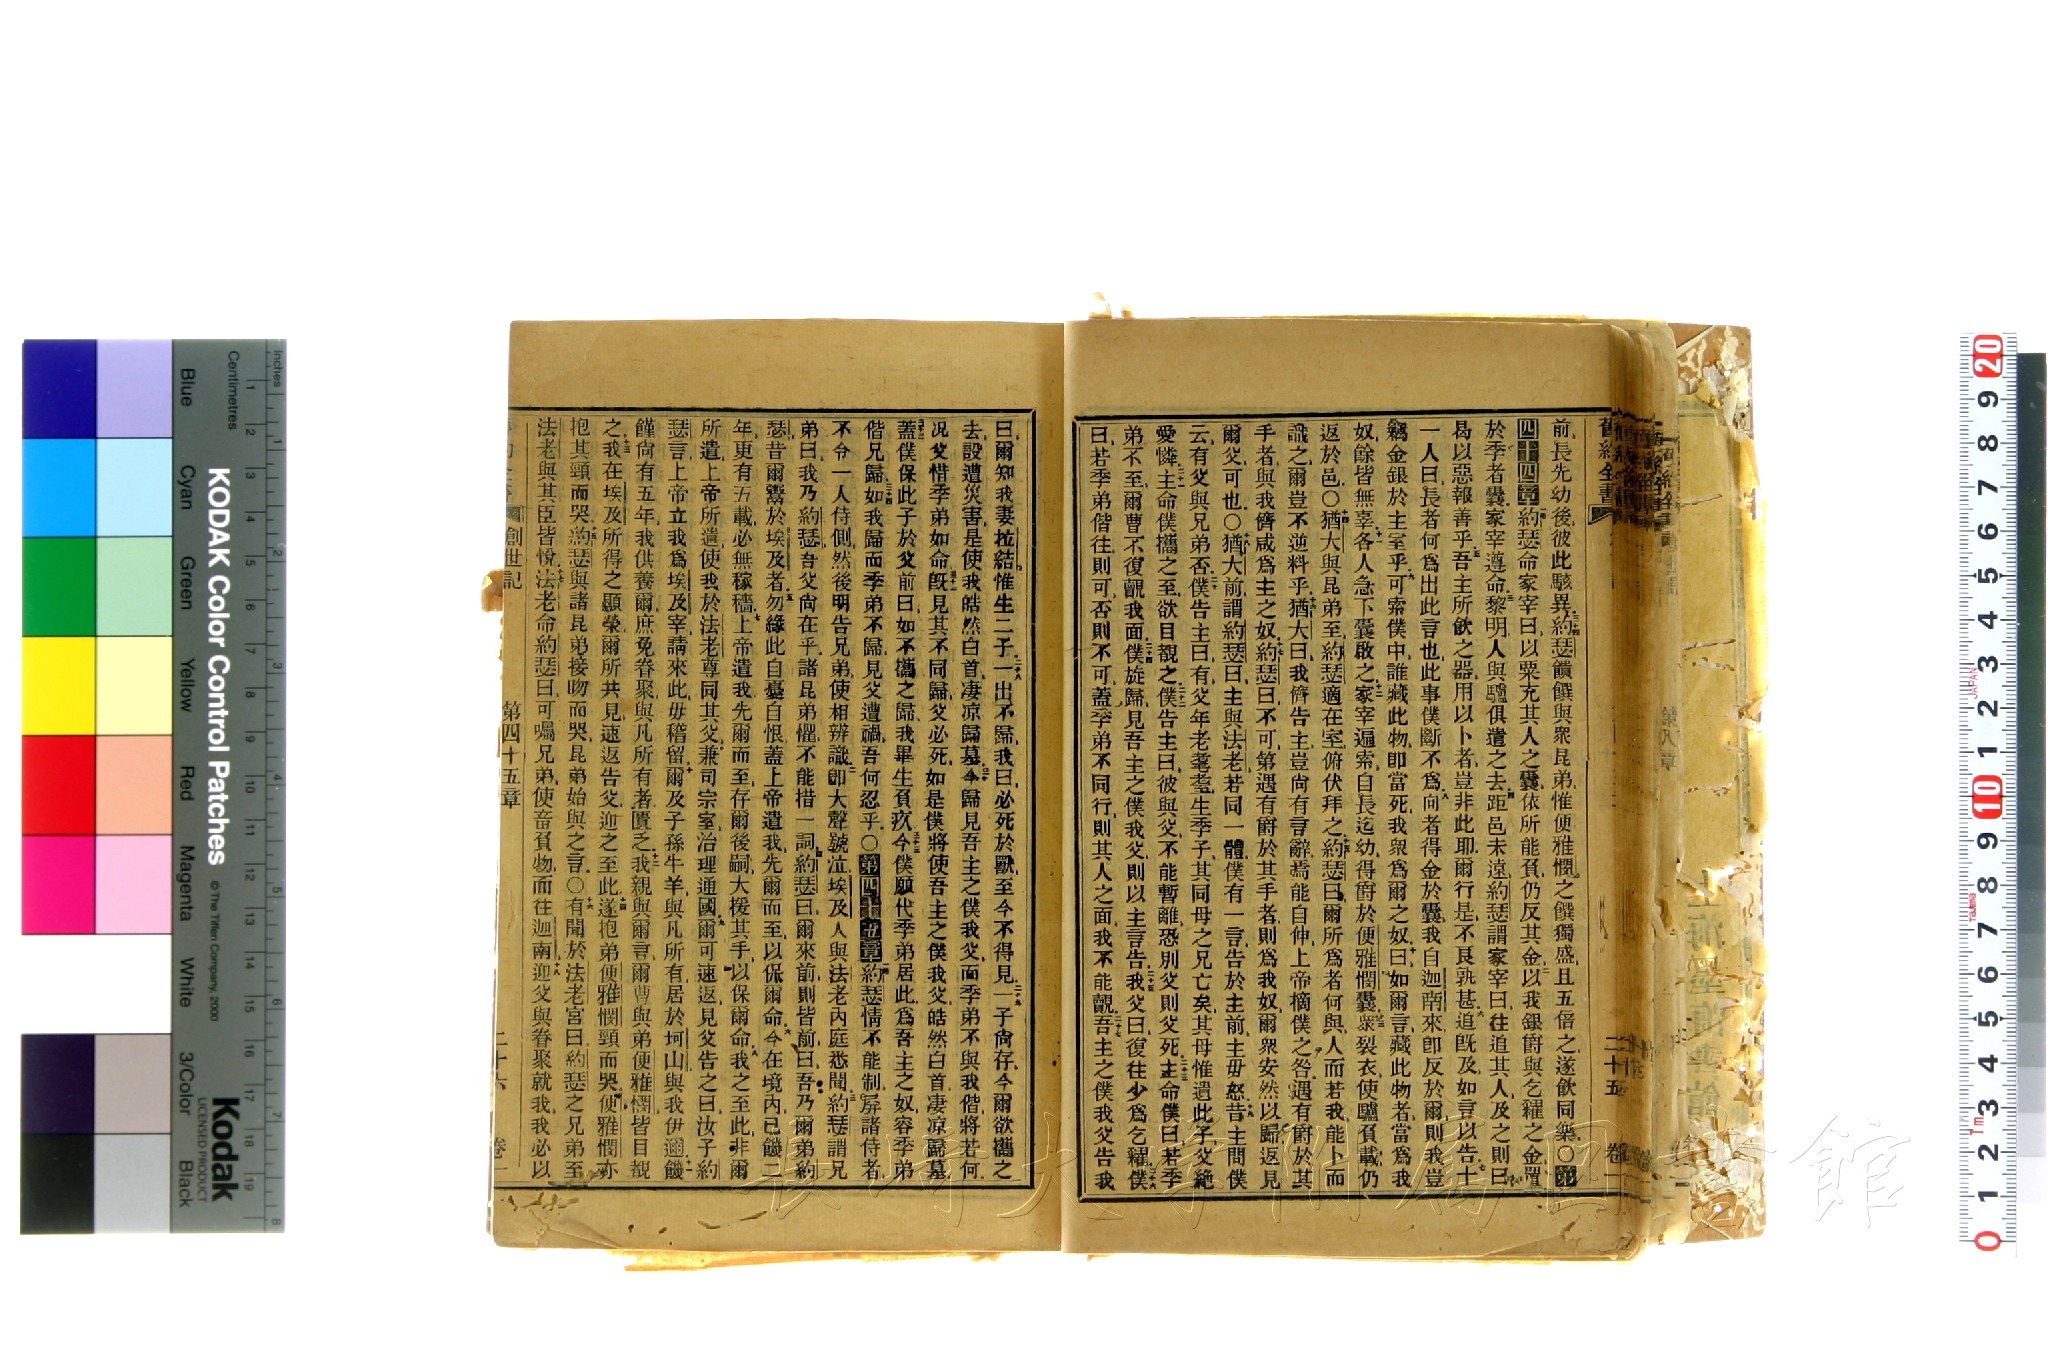 前長先幼後彼此駭異約瑟饋饌與衆昆弟惟便雅憫之饌獨盛且五倍之遂飲同樂○第
四十四章約瑟命家宰曰以粟充其人之囊依所能負仍反其金以我銀爵與乞糴之金置
於季者囊家宰遵命黎明人與驢俱遣之去距邑未遠約瑟謂家宰曰往追其人及之則曰
曷以惡報善乎吾主所飲之器用以卜者豈非此耶爾行是不良孰甚追旣及如言以告十
一人曰長者何爲出此言也此事僕斷不爲向者得金於囊我自迦南來卽反於爾則我豈
竊金銀於主室乎可索僕中誰藏此物卽當死我衆爲爾之奴曰如爾言藏此物者當爲我
奴餘皆無辜各人急下囊啟之家宰遍索自長迄幼得爵於便雅憫囊衆裂衣使驢負載仍
返於邑○猶大與昆弟至約瑟適在室俯伏拜之約瑟曰爾所爲者何與人而若我能卜而
識之爾豈不逆料乎猶大曰我儕告主豈尙有言辭焉能自伸上帝摘僕之咎遇有爵於其
手者與我儕咸爲主之奴約瑟曰不可第遇有爵於其手者則爲我奴爾衆安然以歸返見
爾父可也○猶大前謂約瑟曰主與法老若同一體僕有一言告於主前主毋怒昔主問僕
云有父與兄弟否僕告主曰有父年老耄耋生季子其同母之兄亡矣其母惟遺此子父絕
愛憐主命僕攜之至欲目覩之僕告主曰彼與父不能暫離恐別父則父死主命僕曰若季
弟不至爾曹不復覿我面僕旋歸見吾主之僕我父則以主言告我父曰復往少爲乞糴僕
曰若季弟偕往則可否則不可蓋季弟不同行則其人之面我不能覿吾主之僕我父告我
舊約全書
二十五
卷一
曰爾知我妻拉結惟生二子一出不歸我曰必死於獸至今不得見一子尙存今爾欲攜之
去設遭災害是使我皓然白首凄凉歸墓今歸見吾主之僕我父而季弟不與我偕將若何
況父惜季弟如命旣見其不同歸父必死如是僕將使吾主之僕我父皓然白首凄凉歸墓
蓋僕保此子於父前曰如不攜之歸我畢生負疚今僕願代季弟居此爲吾主之奴容季弟
偕兄歸如我歸而季弟不歸見父遭禍吾何忍乎○第四十五章約瑟情不能制屛諸侍者
不令一人侍側然後明告兄弟使相辨識卽大聲號泣埃及人與法老內庭悉聞約瑟謂兄
弟曰我乃約瑟吾父尙在乎諸昆弟懼不能措一詞約瑟曰爾來前則皆前曰吾乃爾弟約
瑟昔爾鬻於埃及者勿緣此自憂自恨蓋上帝遣我先爾而至以保爾命今在境內已饑二
年更有五載必無稼穡上帝遣我先爾而至存爾後嗣大援其手以保爾命我之至此非爾
所遣上帝所遣使我於法老尊同其父兼司宗室治理通國爾可速返見父告之曰汝子約
瑟言上帝立我爲埃及宰請來此毋稽留爾及子孫牛羊與凡所有居於坷山與我伊邇饑
饉尙有五年我供養爾庶免眷聚與凡所有者匱乏我親與爾言爾曹與弟便雅憫皆目覩
之我在埃及所得之顯榮爾所共見速返告父迎之至此遂抱弟便雅憫頸而哭便雅憫亦
抱其頸而哭約瑟與諸昆弟接吻而哭昆弟始與之言○有聞於法老宮曰約瑟之兄弟至
法老與其臣皆悅法老命約瑟曰可囑兄弟使畜負物而往迦南迎父與眷聚就我我必以
創世記
第四十五章
二十六
卷一
KODAK Color Control Patches
© The Tiffen Company, 2000
Kodak
LICENSED PRODUCT
Inches
Centimetres
Blue
Cyan
Green
Yellow
Red
Magenta
White
3/Color
Black
JAPAN
長崎大学附属図書館